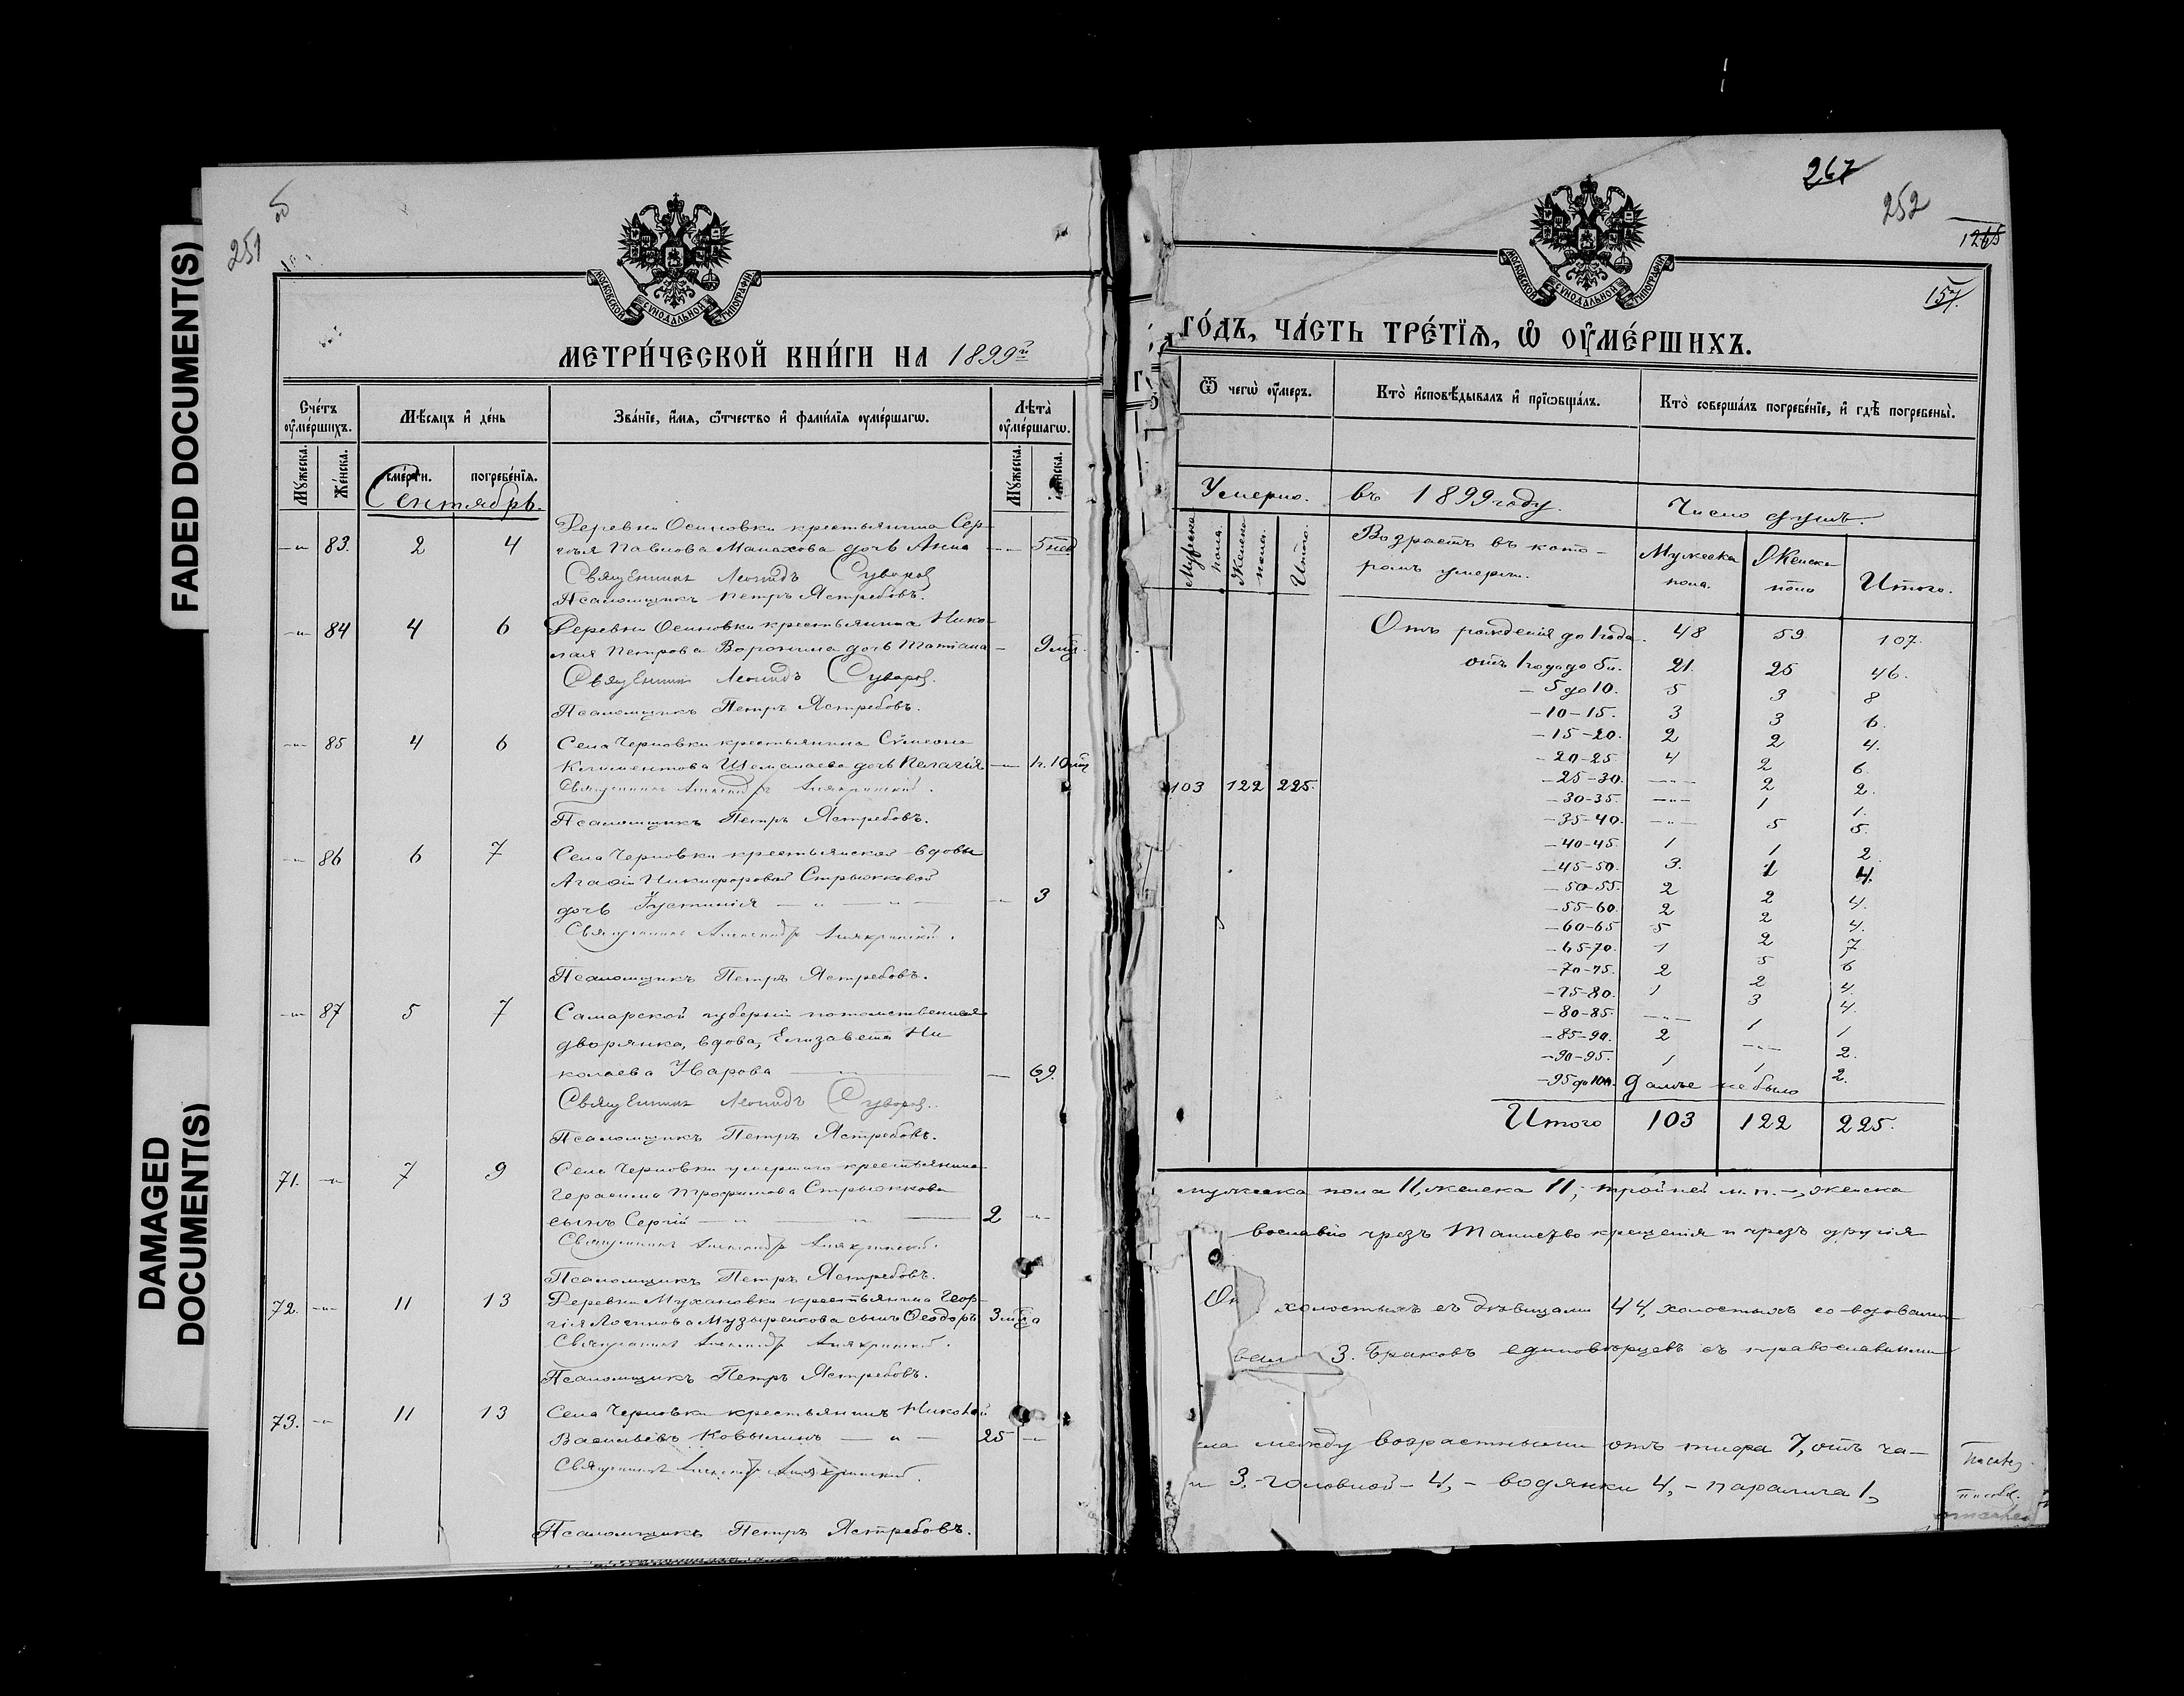 FADED DOCUMENT(S)
DAMAGED
DOCUMENT(S)
251
об
МОСКОВСКОЙ СѴНОДАЛЬНОЙ ТИПОГРАФІИ
МЕТРИ́ЧЕСКОЙ КНИ́ГИ НА 1899й
Сче́тъ ᲂу҆ме́ршихъ.
Мѣ́сяцъ и҆ де́нь
Зва́нїе, и҆́мя, ѻ҆́тчество и҆ фами́лїя ᲂу҆ме́ршагѡ.
Лѣта̀ ᲂу҆ме́ршагѡ.
Мꙋ́жеска.
Же́нска.
сме́рти.
погребе́нїѧ.
Мꙋ́жеска.
Сентябрь.
Деревни Осиновки крестьянина Сер-
—"— 83. 2 4 гѣя Павлова Малахова дочь Анна —"— 5 нед
Священникъ Леонидъ Суворов
Псаломщикъ Петръ Ястребовъ.
—"— 84 4 6 Деревни Осиновки крестьянина Нико-
лая Петрова Воронина дочь Татіана — 9 мѣс.
Священник Леонидъ Суворов.
Псаломщикъ Петръ Ястребовъ.
—"— 85 4 6 Села Черновки крестьянина Сѵмеона
Климентова Шемалаева дочь Пелагія —"— 1г. 10 мѣс
Священникъ Александръ
Псаломщикъ Петръ Ястребовъ.
—"— 86 6 7 Села Черновки крестьянской вдовы
Агафіи Никифоровой Стрыжковой
дочь Іустинія —"—"— —"— 3
Священникъ Александръ
Псаломщикъ Петръ Ястребовъ.
—"— 87 5 7 Самарской губерніи потомственная
дворянка, вдова, Елизавета Ни
колаева Жарова —"— — 69.
Священник Леонидъ Суворов.
Псаломщикъ Петръ Ястребовъ.
71. —"— 7 9 Села Черновки умершаго крестьянина
Герасима Трофимова Стрыжкова
сынъ Сергій —"—"— 2 —"—
Священникъ Александръ
Псаломщикъ Петръ Ястребовъ.
72. —"— 11 13 Деревни Мухановки крестьянина Геор-
гія Логинова Музыренкова сынъ Ѳеодоръ 3 мѣс.
Священникъ Александръ
Псаломщикъ Петръ Ястребовъ.
73. —"— 11 13 Села Черновки крестьянинъ Николай
Васильевъ Ковылинъ —"— 25 —"—
Священникъ Александръ
Псаломщикъ Петръ Ястребовъ.
267
252
1265
157.
МОСКОВСКОЙ СѴНОДАЛЬНОЙ ТИПОГРАФІИ
ГО́ДЪ, ЧА́СТЬ ТРЕ́ТЇЯ, Ѽ ОУ҆МЕ́РШИХЪ.
Ѿ чегѡ̀ ᲂу҆́меръ.
Кто̀ и҆сповѣ́дывалъ и҆ прїѡбща́лъ.
Кто̀ соверша́лъ погребе́нїе, и҆ гдѣ̀ погребены̀.
Умерло.
въ 1899 году.
Число душъ.
Мужска пола.
Женска пола.
Итого.
Возрастъ въ кото-
ромъ умерли.
Мужеска пола.
Женска пола
Итого.
Отъ рожденія до 1 года. 48 59. 107.
отъ 1 года до 5 л. 21. 25 46.
— 5 до 10. 5 3 8
— 10 – 15. 3 3 6.
— 15 – 20. 2 2 4.
— 20 – 25. 4 2 6.
— 25 – 30. —"— 2 2.
103 122 225.
— 30 – 35. —"— 1 1.
— 35 – 40. —"— 5 5.
— 40 – 45. 1 1 2.
— 45 – 50. 3. 1 4.
— 50 – 55. 2 2 4.
— 55 – 60. 2 2 4.
— 60 – 65 5 2 7
— 65 – 70. 1 5 6
— 70 – 75. 2 2 4.
— 75 – 80. 1 3 4.
— 80 – 85. —"— 1 1
— 85 – 90. 2 —"— 2.
— 90 – 95. 1 1 2.
— 95 до 100. далѣе не было
Итого 103 122 225.
мужеска пола 11, женска 11; тройней м. п. —, женска
вославію чрезъ Таинство крещенія и чрезъ другія
холостыхъ съ дѣвицами 44, холостыхъ со вдовами
3. Браковъ единовѣрцевъ съ православными
между возрастными отъ тифа 7, отъ ча-
и 3, головной – 4, – водянки 4, – паралича 1,